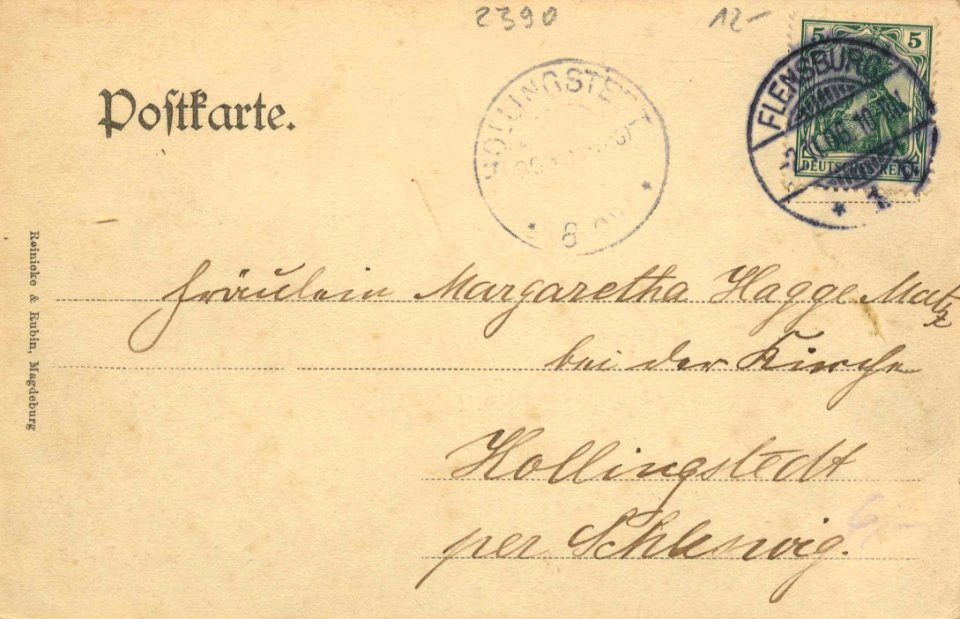 2390 12-
5 5
DEUTSCHES REICH
FLENSBURG
* 1
HOLLINGSTEDT
* 8 *
Postkarte.
Reinicke & Rubin, Magdeburg
Fräulein Margaretha Hagge
bei der Kirche
Hollingstedt
per Schleswig.